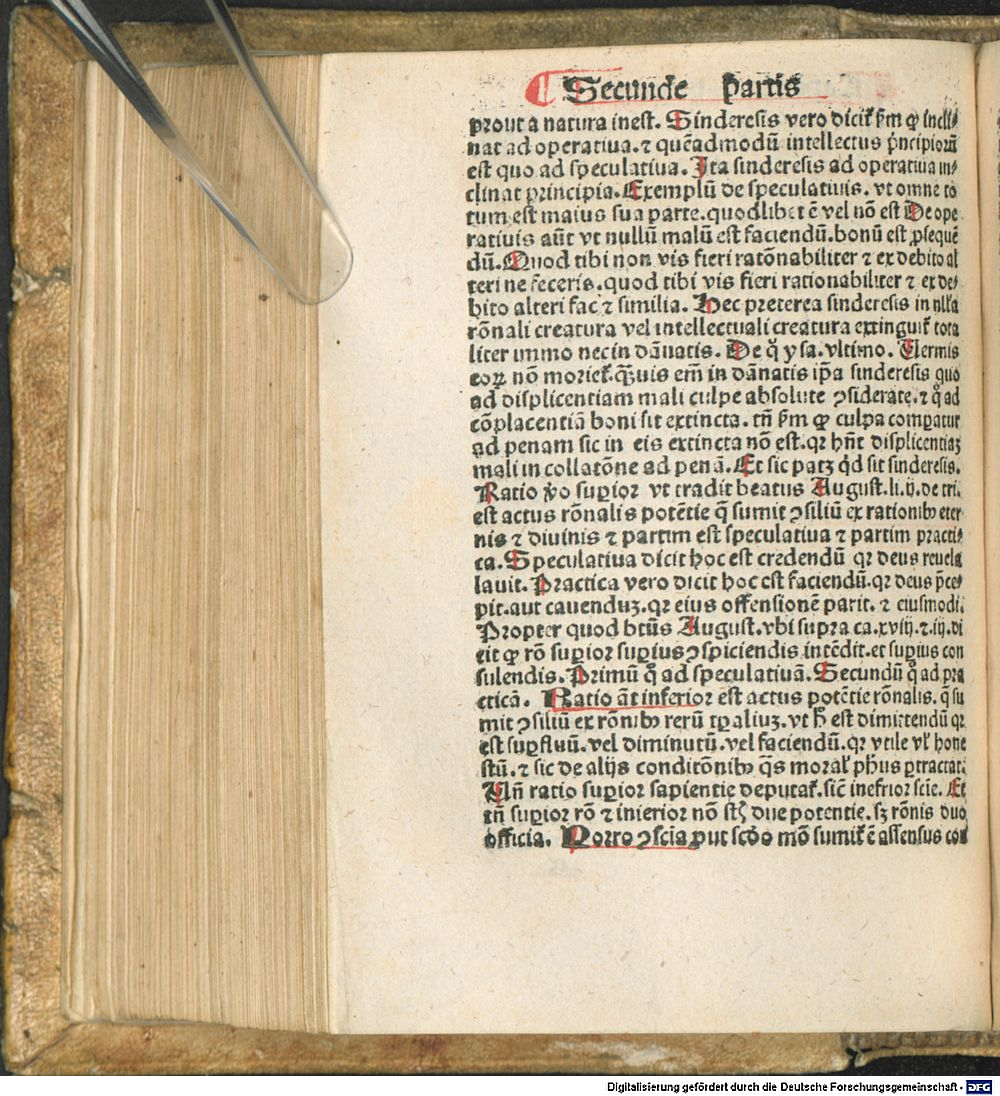 Secunde p̄artis
prout a natura inest. Sinderesis vero dicit̄ ẜm ꝙ incli⸗
nat ad operatiua. ⁊ quēadmodū intellectus p̄ncipiorū
est quo ad speculatiua. Ita sinderesis ad operatiua in⸗
clinat principia. Exemplū de speculatiuis. vt omne to
tum est maius sua parte. quodlibet ē vel nō est De ope
ratiuis aūt vt nullū malū est faciendū. bonū est ꝓsequē
dū. Quod tibi non vis fieri ratōnabiliter ⁊ ex debito al
teri ne feceris. quod tibi vis fieri rationabiliter ⁊ ex de⸗
bito alteri fac ⁊ similia. Hec preterea sinderesis in nlla
rōnali creatura vel intellectuali creatura extinguit̄ tota
liter immo nec in dāuatis. De q̊ ysa. vltimo. Uermis
eoꝝ nō moriet̄. Quis em̄ in dānatis ip̄a sinderesis quo
ad displicentiam mali culpe absolute ꝯsiderate. ⁊ q̊ ad
cōplacentiā boni sit extincta. tn̄ ẜm ꝙ culpa compatur
ad penam sic in eis extincta nō est. qꝛ hn̄t displicentiaꝫ
mali in collatōne ad penā. Et sic patꝫ qd̄ sit sinderesis.
Ratio v̊o supior vt tradit beatus August. li. ij. de tri.
est actus rōnalis potētie q̄ sumit ꝯsiliū ex rationibꝰ eter
nis ⁊ diuinis ⁊ partim est speculatiua ⁊ partim practi⸗
ca. Speculatiua dicit hoc est credendū qꝛ deus reuela
lauit. Practica vero dicit hoc est faciendū. qꝛ deus p̄ce⸗
pit. aut cauenduꝫ. qꝛ eius offensionē parit. ⁊ eiusmodi.
Propter quod btūs August. vbi supra ca. xviij. ⁊. iij. di
cit ꝙ rō supior supius ꝯspiciendis intēdit. et supius con
sulendis. Primū q̊ ad speculatiuā. Secundū q̊ ad pra
cticā. Ratio āt inferior est actus potētie rōnalis. q̄ su
mit ꝯsiliū ex rōnibꝰ rerū tꝑaliuꝫ. vt h̄ est dimittendū qꝛ
est supfluū. vel diminutū. vel faciendū. qꝛ vtile vl̕ hone
stū. ⁊ sic de alijs conditōnibꝰ q̄s moral̕ ph̄us ꝑtractat.
Un̄ ratio supior sapientie deputat̄. sic̄ inefrior scie. Et
tn̄ supior rō ⁊ inferior nō st̄ due potentie. sꝫ rōnis duo
officia. Porro ꝯscia ꝓut scd̄o mō sumit̄ ē assensus con